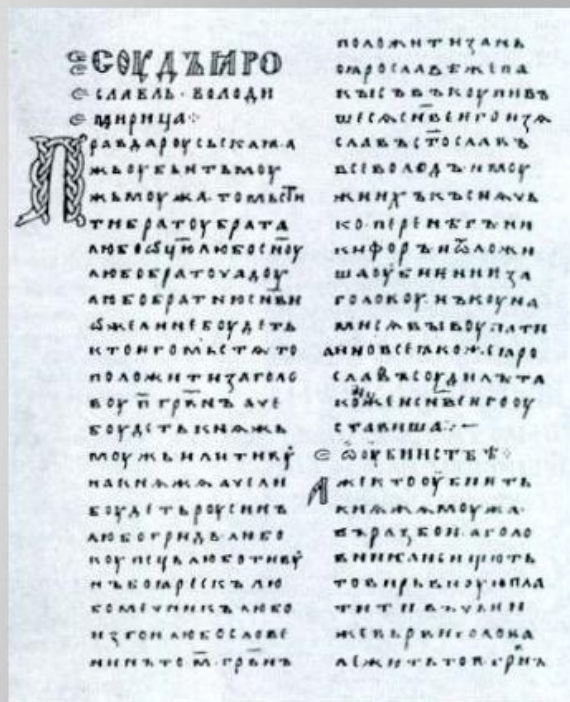 СОУДЪ ІАРО
СЛАВЛЬ · ВОЛОДИ
МИРИЦА⁘
Правда роусьскаꙗ · а
жь оубьить моу
жь моужа · то мьсти
ти братоу брата
любо ѡц҃ю любо сн҃оу
любо братоучадоу
любо братню сн҃ви
ѡже ли не боудеть
кто ѥго мьстѧ то
положити за голо
воу п҃ грв҃нъ аче
боудеть кнѧжь
моужь или тивоу
на кнѧжѧ аче ли
боудеть роусинъ
любо гридь любо
коупець любо тивоу
нъ боꙗрескъ лю
бо мечникъ любо
изгои любо слове
нинъ то м҃ · грв҃нъ
положити за нь
по ꙗрославѣ же па
кы съвъкоупивъ
шесѧ сн҃ве ѥго изѧ
славъ ст҃ославъ
всеволодъ и моу
жи ихъ къснѧчь
ко перенѣгъ ни
кифоръ и ѿложи
ша оубиениѥ за
головоу · нъ коуна
ми сѧ выкоупати
а ино все ꙗкоже ꙗро
славъ соудилъ та
коже и сн҃ве ѥго оу
ставиша ⁘ —
ѡ оубииствѣ⁘
Аже кто оубиѥть
кнѧжа моужа
въ разбои · а голо
вника не ищють
то вирьвноую пла
тити въ чьѥи
же вьрви голова
лежить то п҃ · грв҃нъ